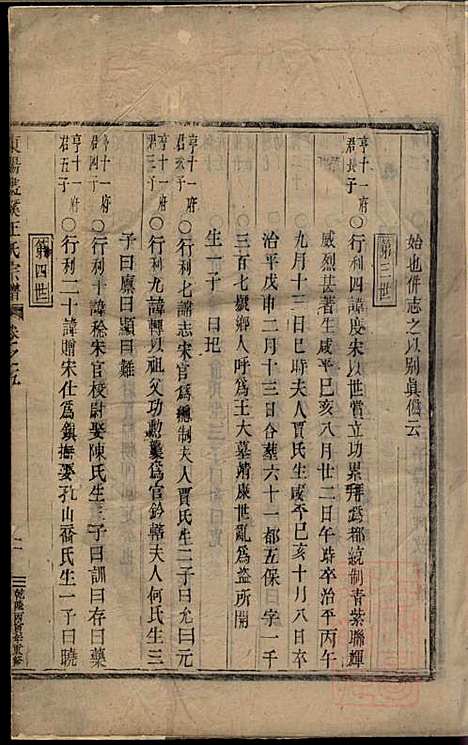 始也併志之以別眞僞云
第三世
亨十一府君長子
○行利四諱度宋以世賞立功累拜爲都統制青紫聯輝
威烈甚著生咸平己亥八月廿二日午時卒治平丙午
九月十三日巳時夫人賈氏生咸平己亥十月八日卒
治平戊申二月十三日合葬六十一都五保曰字一千
三百七號鄉人呼爲王大墓靖康世亂爲盜所開
生一子曰玘
亨十一府君次子
○行利七諱志宋官爲總制夫人賈氏生二子曰允曰元
亨十一府君三子
○行利九諱轉以祖父功勳襲爲官鈐轄夫人何氏生三
子曰廉曰顯曰雖
亨十一府君四子
○行利十諱稔宋官校尉娶陳氏生三子曰訓曰存曰藥
亨十一府君五子
○行利二十諱贈宋仕爲鎮撫娶孔山喬氏生一子曰曉
第四世
東陽 溪王氏宗譜 卷之五
乾隆丙 年重修